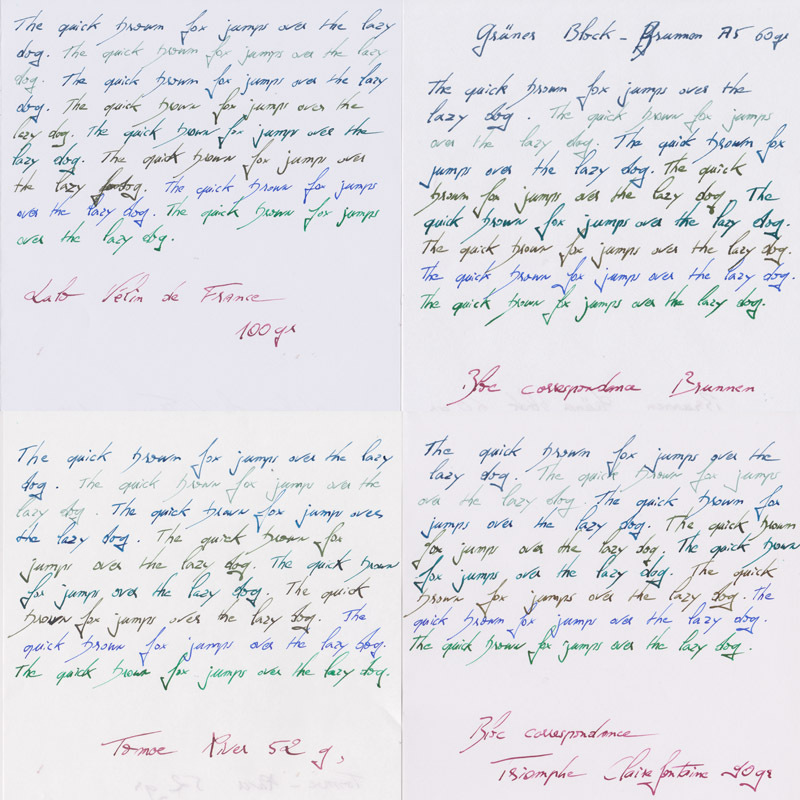 The quick brown fox jumps over the lazy
dog. The quick brown fox jumps over the lazy
dog. The quick brown fox jumps over the lazy
dog. The quick brown fox jumps over the
lazy dog. The quick brown fox jumps over the
lazy dog. The quick brown fox jumps over
the lazy dog. The quick brown fox jumps
over the lazy dog. The quick brown fox jumps
over the lazy dog.
Lalo Vélin de France
100 gr
Grüner Block - Brunnen A5 60gr
The quick brown fox jumps over the
lazy dog. The quick brown fox jumps
over the lazy dog. The quick brown fox
jumps over the lazy dog. The quick
brown fox jumps over the lazy dog The
quick brown fox jumps over the lazy dog.
The quick brown fox jumps over the lazy dog.
The quick brown fox jumps over the lazy dog.
The quick brown fox jumps over the lazy dog.
Bloc correspondance Brunnen
The quick brown fox jumps over the lazy
dog. The quick brown fox jumps over the
lazy dog. The quick brown fox jumps over
the lazy dog. The quick brown fox
jumps over the lazy dog. The quick brown
fox jumps over the lazy dog. The quick
brown fox jumps over the lazy dog. The
quick brown fox jumps over the lazy dog.
The quick brown fox jumps over the lazy dog.
Tomoe River 52 g,
The quick brown fox jumps over the
lazy dog. The quick brown fox jumps
over the lazy dog. The quick brown fox
jumps over the lazy dog. The quick brown
fox jumps over the lazy dog. The quick brown
fox jumps over the lazy dog. The quick
brown fox jumps over the lazy dog. The
quick brown fox jumps over the lazy dog.
The quick brown fox jumps over the lazy dog.
Bloc correspondance
Triomphe Clairefontaine 90gr